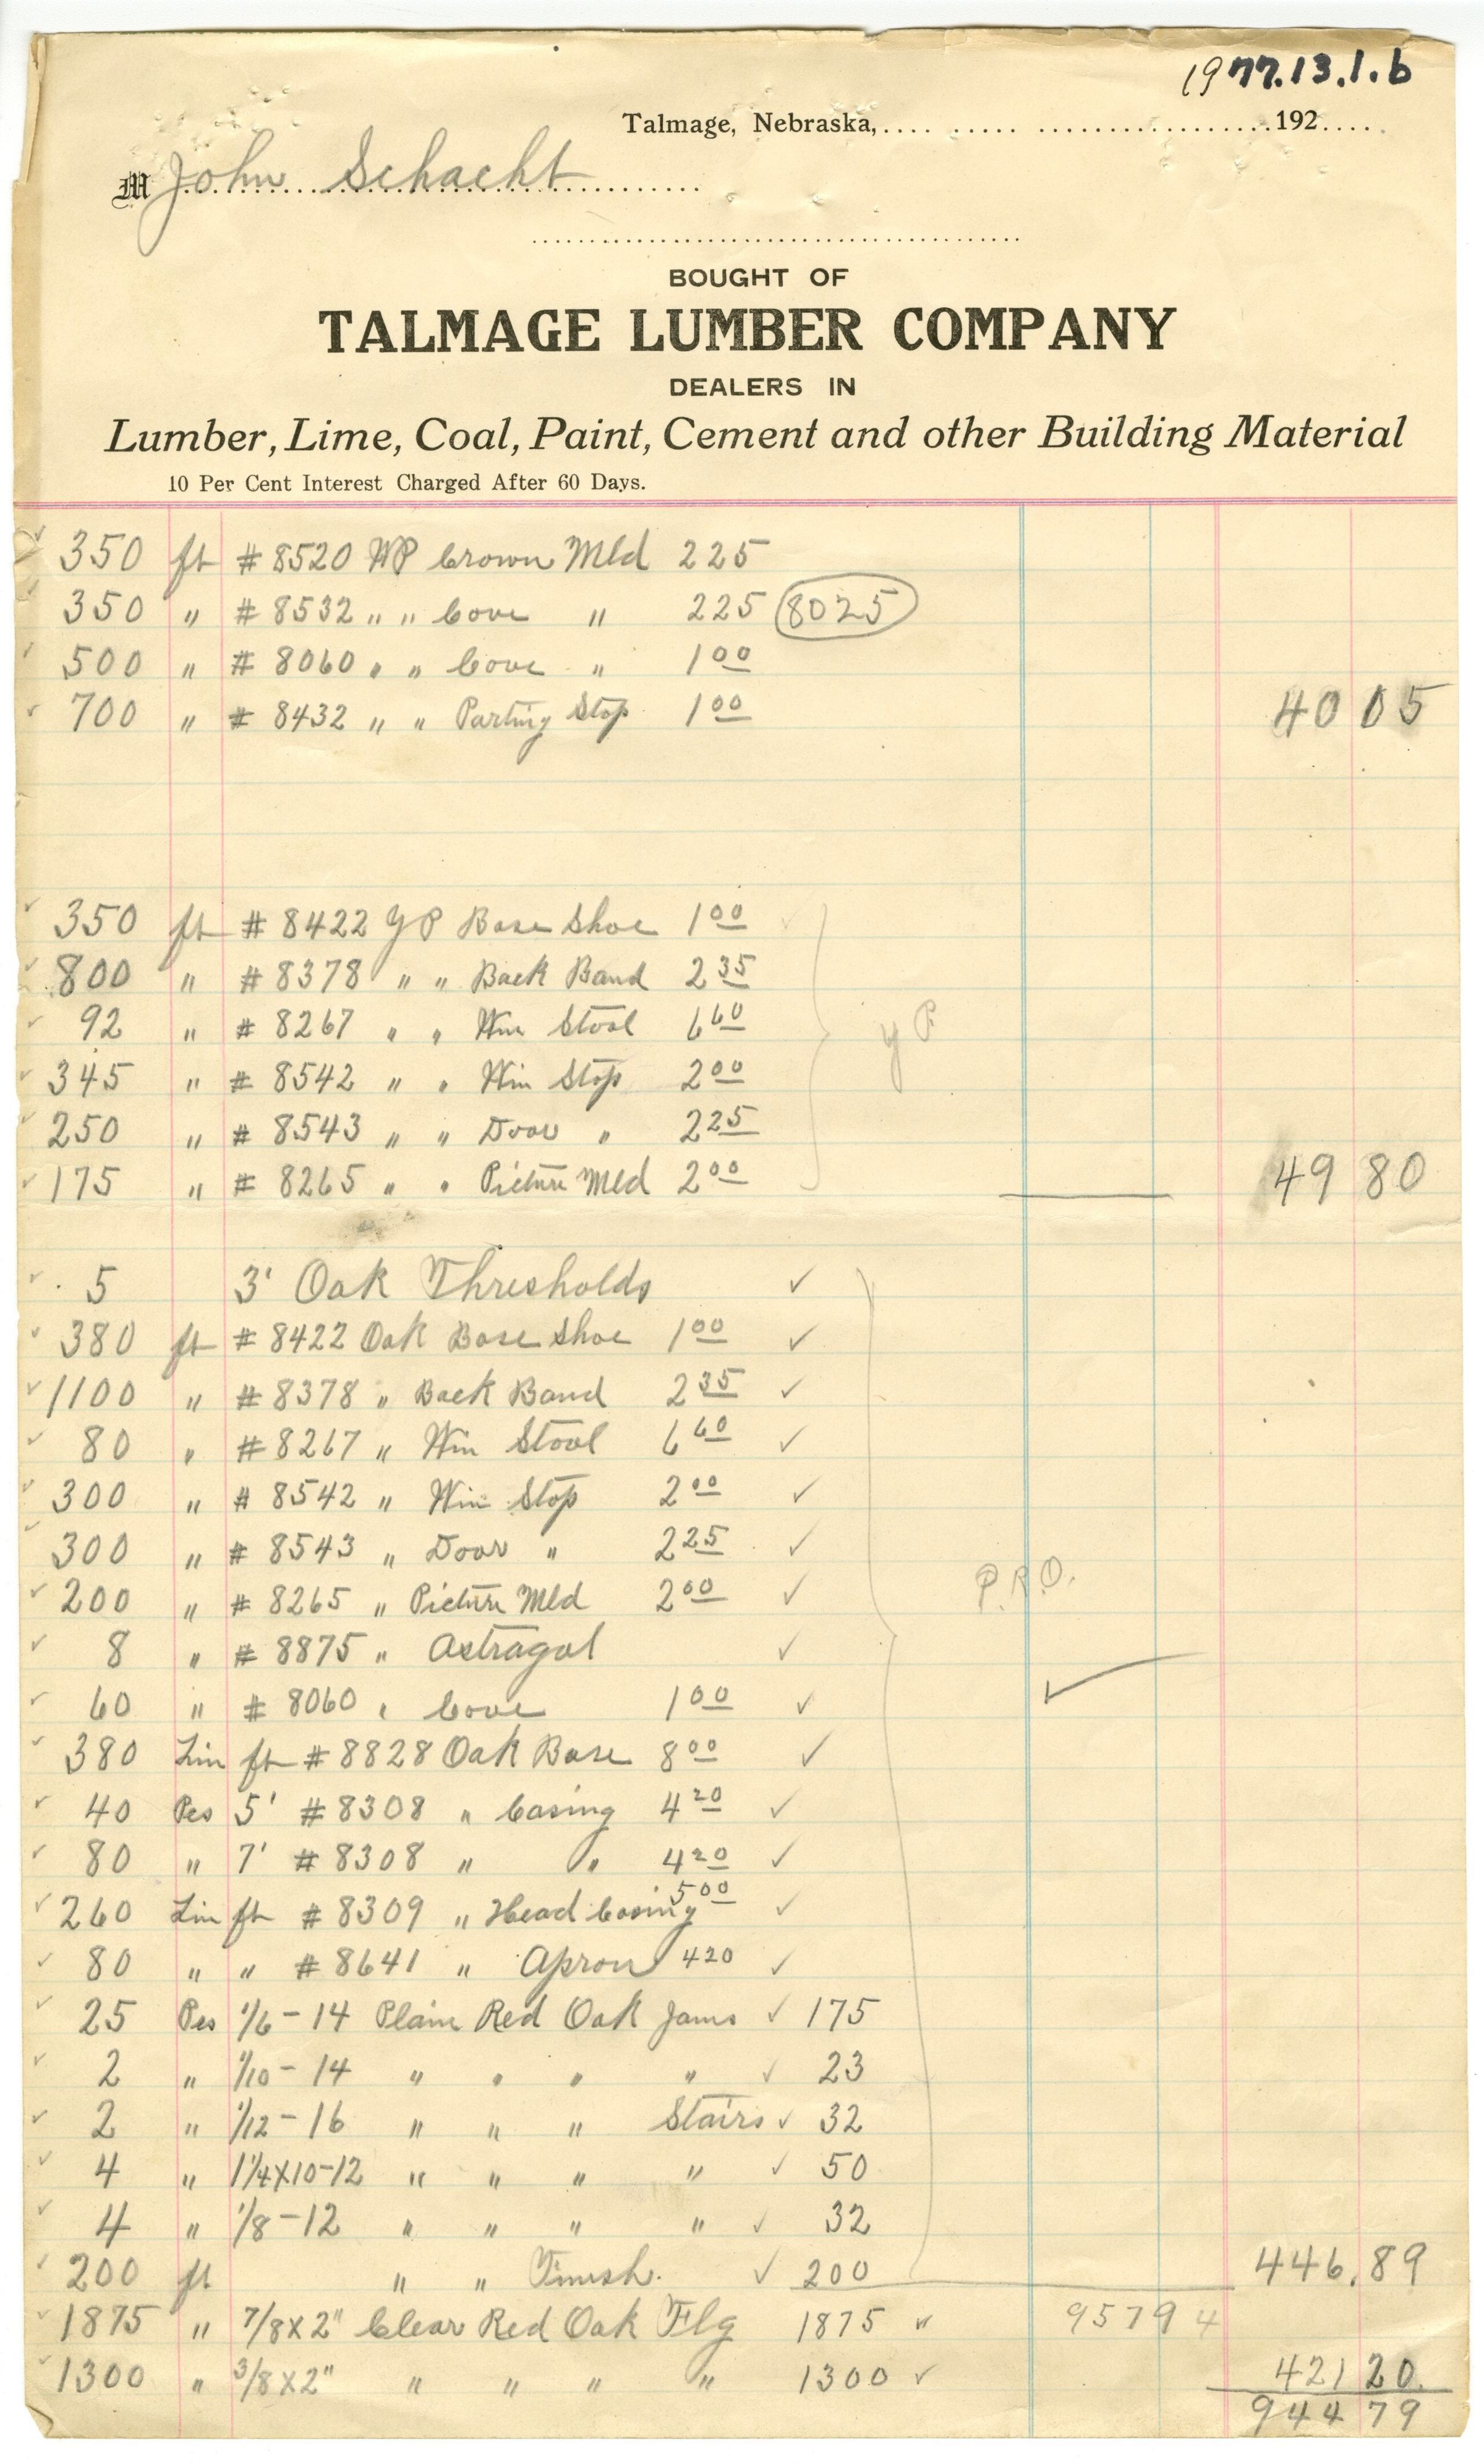 1977.13.1.b
Talmage, Nebraska, 192
M John Schacht
BOUGHT OF
TALMAGE LUMBER COMPANY
DEALERS IN
Lumber, Lime, Coal, Paint, Cement and other Building Material
10 Per Cent Interest Charged After 60 Days.
350 ft #8520 WP Crown Mld 225
350 " #8532 " " Cove " 225 8025
500 " #8060 " " Cove " 1 00
700 " #8432 " " Parting Stop 1 00 40 05
350 ft #8422 YP Base Shoe 1 00
800 " #8378 " " Back Band 2 35
92 " #8267 " " Win Stool 6 60
YP
345 " #8542 " " Win Stop 2 00
250 " #8543 " " Door " 2 25
175 " #8265 " " Picture Mld 2 00 49 80
5 3' Oak Thresholds ✓
380 ft #8422 Oak Base Shoe 1 00 ✓
1100 " #8378 " Back Band 2 35 ✓
80 " #8267 " Win Stool 6 60 ✓
300 " #8542 " Win Stop 2 00 ✓
300 " #8543 " Door " 2 25 ✓
P.R.O.
200 " #8265 " Picture Mld 2 00 ✓
8 " #8875 " Astragal ✓
60 " #8060 " Cove 1 00 ✓
380 Lin ft #8828 Oak Base 8 00 ✓
40 Pcs 5' #8308 " Casing 4 20 ✓
80 " 7' #8308 " " 4 20 ✓
260 Lin ft #8309 " Head Casing 5 00 ✓
80 " " #8641 " Apron 420 ✓
25 Pcs 1/6-14 Plain Red Oak Jams ✓ 175
2 " 1/10-14 " " " " ✓ 23
2 " 1/12-16 " " " Stairs ✓ 32
4 " 1 1/4X10-12 " " " " ✓ 50
4 " 1/8-12 " " " " ✓ 32
200 ft " " Finish. ✓ 200 446.89
1875 " 7/8X2" Clear Red Oak Flg 1875 ✓ 957 94
1300 " 3/8X2" " " " " 1300 ✓ 421 20
944 79